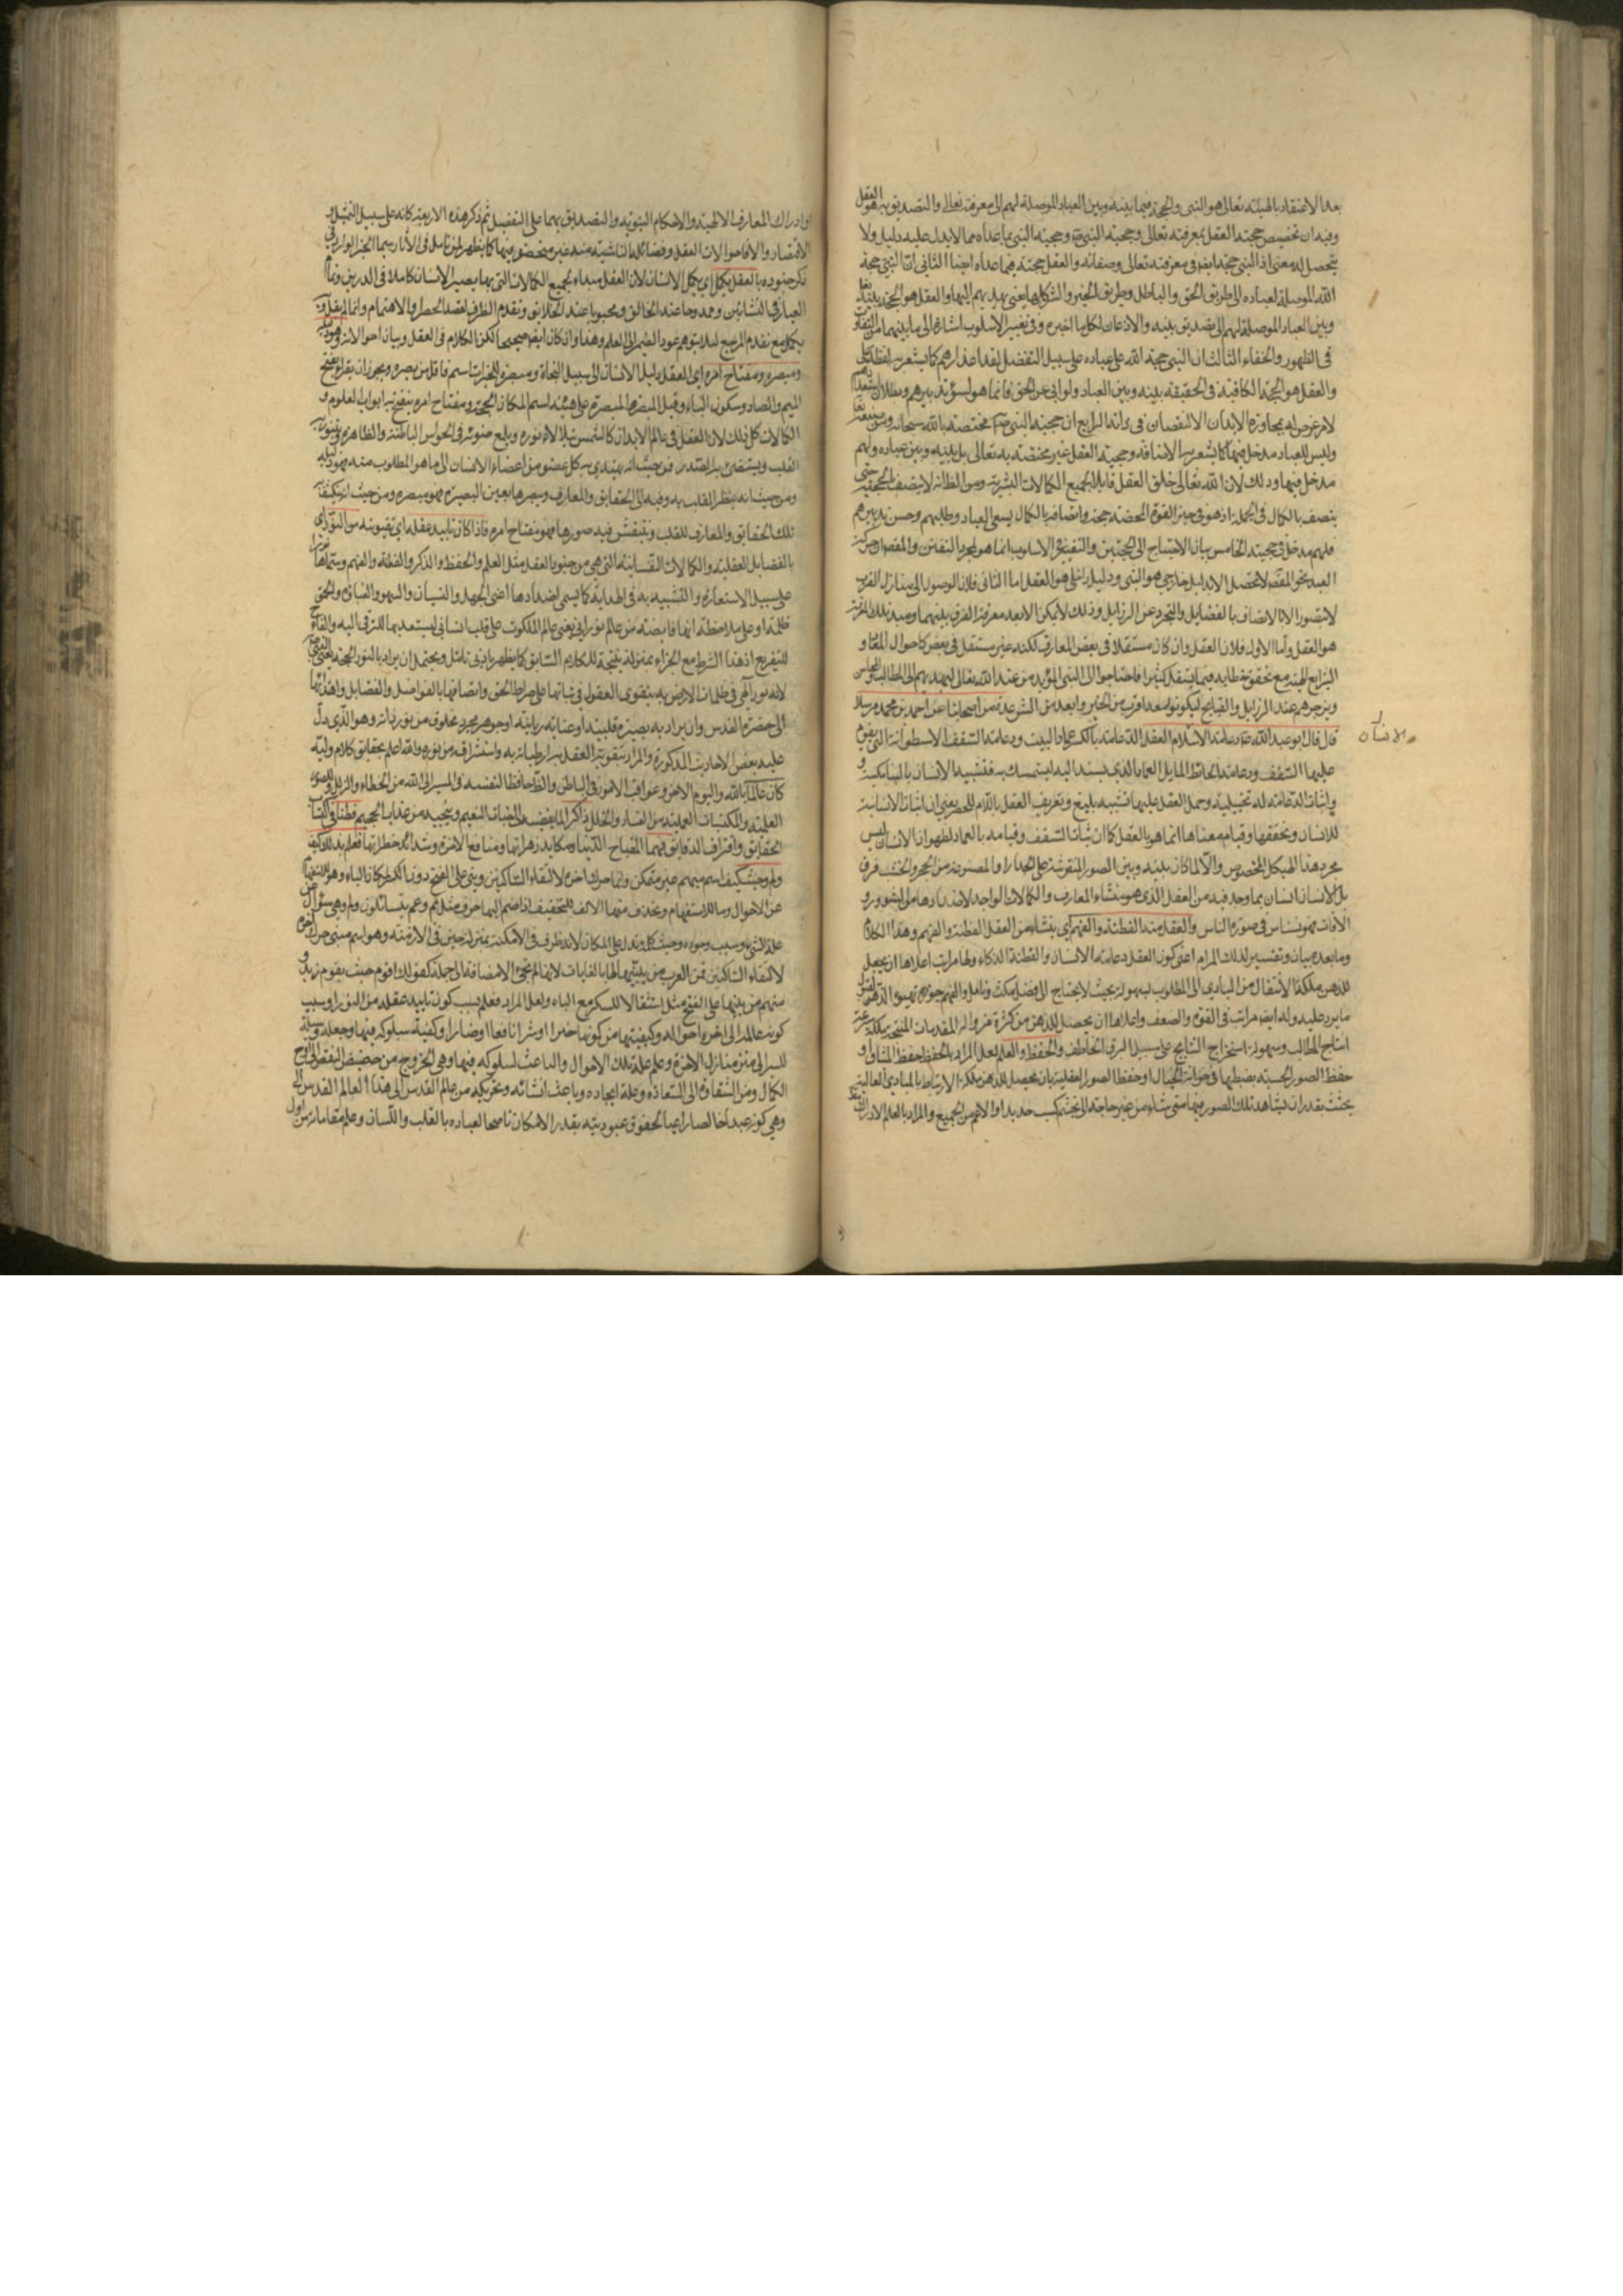 بعد الاعتقاد بالهيته تعالى هو النبي والحجة فيما بينه وبين العباد الموصلة لهم الى معرفته تعالى والتصديق به هو العقل
وفيه ان تخصيص حجية العقل بمعرفته تعالى وحجية النبي ص بما عداه مما لا يدل عليه دليل ولا
يتحصل له معنى اذ النبي حجة ايضا في معرفته تعالى وصفاته والعقل حجة فيما عداه ايضا الثاني ان النبي حجة
الله الموصلة لعباده الى طريق الحق والباطل وطريق الخير والشر كلها يعني يهديهم اليها والعقل هو الحجة بينه
وبين العباد الموصلة لهم الى تصديق نبيه والاذعان لكل ما اخبره وفي تغيير الاسلوب اشارة الى ما بينهما من التفاوت
في الظهور والخفاء الثالث ان النبي حجة الله على عباده على سبيل التفضل لقطع اعذارهم كما يشعر به لفظة على
والعقل هو الحجة الكافية في الحقيقة بينه وبين العباد ولو ابى عن الحق فانما هو لسوء تدبيرهم وبطلان استعدادهم
لامر عرض لهم بمجاورة الابدان الرابع ان حجية النبي ص مختصة بالله سبحانه ومن صنعه
وليس للعباد مدخل فيها كما يشعر به الاضافة وحجية العقل غير مختصة به تعالى بل بينه وبين عباده ولهم
مدخل فيها وذلك لان الله تعالى خلق العقل قابلا لجميع الكمالات البشرية ومن الظاهر انه لا يتصف بالحجية حتى
يتصف بالكمال في الجملة اذ هو في حيز القوة المحضة واتصافه بالكمال بسعي العباد وطلبهم وحسن تدبيرهم
فلهم مدخل في حجيته الخامس بيان الاحتياج الى الحجتين والتغيير في الاسلوب انما هو لمجرد التفنن والمقصود ان حركة
العبد نحو المقصد لا تحصل الا بدليل خارجي هو النبي ودليل داخلي هو العقل اما الثاني فلان الوصول الى منازل القرب
لا يتصور الا بالاتصاف بالفضايل والتجرد عن الرذايل وذلك لا يمكن الا بعد معرفة الفرق بينهما ومبدء تلك المعرفة
هو العقل واما الاول فلان العقل وان كان مستقلا في بعض المعارف لكنه غير مستقل في بعض كاحوال المعاد و
الشرايع فاحتاجوا الى النبي المؤيد من عند الله تعالى ليهديهم الى المطالب والمحاسن
ويزجرهم عند الرذايل والقبايح ليكونوا بعد اقرب من الخير وابعد من الشر عدة من اصحابنا عن احمد بن محمد مرسلا
قال قال ابو عبد الله ع دعامة الانسان العقل الدعامة بالكسر عماد البيت ودعامة السقف الاسطوانة التي يقوم
عليها السقف ودعامة الحائط المايل العماد الذي يسند اليه ليستمسك به فتشبيه الانسان بالبناء مكنية و
اثبات الدعامة له تخييلية وحمل العقل عليها تشبيه بليغ وتعريف العقل باللام للحصر يعني ان اثبات الانسانية
للانسان وتحققها وقيام معناها انما هو بالعقل كما ان ثبات السقف وقيامه بالعماد لظهور ان الانسان ليس
مجرد هذا الهيكل المخصوص والا لما كان بينه وبين الصور المنقوشة على الجدار او المصنوعة من الحجر والخشب فرق
بل الانسان انسان بما وجد فيه من العقل الذي هو منشاء المعارف والكمالات الواجد لاضدادها من الشرور و
الآفات فهو نسناس في صورة الناس والعقل منه الفطنة والفهم اي ينشاء من العقل الفطنة والفهم وهذا الكلام
وما بعده بيان وتفسير لذلك المرام اعني كون العقل دعامة الانسان والفطنة الذكاء ولها مراتب اعلاها ان يحصل
للذهن ملكة الانتقال من المبادي الى المطلوب بسهولة بحيث لا يحتاج الى فضل مكث وتامل والفهم جودة تهيؤ الذهن لقبول
ما يرد عليه وله ايضا مراتب في القوة والضعف واعلاها ان يحصل للذهن من كثرة مزاولة المقدمات المنتجة ملكة سرعة
انتاج المطالب وسهولة استخراج النتايج على سبيل البرق الخاطف والحفظ والعلم لعل المراد بالحفظ
حفظ الصور الحسية بضبطها في خزانة الخيال او حفظ الصور العقلية بان يحصل للذهن ملكة الارتباط بالمبادي العالية
بحيث يقدر ان يشاهد تلك الصور فيها متى شاء من غير حاجة الى تجشم كسب جديد او الاعم من الجميع والمراد بالعلم الادراك
الانسان
او ادراك المعارف الالهية والاحكام النبوية والتصديق بهما على التفصيل ثم ذكر هذه الاربعة كانه على سبيل التمثيل و
الاقتصار والا فاحوالات العقل وفضائله الناشية منه غير منحصرة فيها كما يظهر لمن تامل في الآثار سيما الخبر الوارد في
ذكر جنوده بالعقل يكمل اي يكمل الانسان لان العقل مبداء لجميع الكمالات التي بها يصير الانسان كاملا في الدارين
وممدوحا عند الخالق ومحبوبا عند الخلايق وتقديم الظرف لقصد الحصر او الاهتمام وانما لم يقل
يكمل مع تقدم المرجع لئلا يتوهم عود الضمير الى العلم وهذا وان كان ايضا صحيحا لكن الكلام في العقل وبيان احوالاته وهو دليله
ومبصره ومفتاح امره اي العقل دليل الانسان الى سبيل النجاة ومبصره للخيرات اسم فاعل من بصره ويجوز ان يقرأ بفتح
الميم والصاد وسكون الباء وقيل المبصرة على هيئة اسم المكان الحجة ومفتاح امره ينفتح به ابواب العلوم و
الكمالات كل ذلك لان العقل في عالم الابدان كالشمس يتلالاء نوره ويلمع ضوئه في الحواس الباطنة والظاهرة
القلب ويستضيئ به الصدر فمن حيث انه يهتدي به كل عضو من اعضاء الانسان الى ما هو المطلوب منه فهو دليله
ومن حيث انه ينظر القلب به وفيه الى الحقايق والمعارف ويبصرها بعين البصيرة فهو مبصره ومن حيث انه يكشف
تلك الحقايق والمعارف للقلب وينتقش فيه صورها فهو مفتاح امره فاذا كان تاييد عقله اي تقويته من النور اي
بالفضايل العقلية والكمالات النفسانية التي هي من جنود العقل مثل العلم والحفظ والذكر والفطنة والفهم وسماها نورا
على سبيل الاستعارة والتشبيه به في الهداية كما يسمى اضدادها اعني الجهل والنسيان والسهو والغباوة والحمق
ظلمة او على ملاحظة انها فايضة من عالم نوراني يعني عالم الملكوت على قلب انساني ليستعد بها للترقي اليه والفاء
للتفريع اذ هذا الشرط مع الجزاء بمنزلة نتيجة للكلام السابق كما يظهر بادنى تامل ويحتمل ان يراد بالنور الحجة يعني النبي ص
لانه نور الهي في ظلمات الارض به يتقوى العقول في ثباتها على صراط الحق واتصافها بالفواضل والفضايل واهتدائها
الى حضرة القدس وان يراد به بصيرة قلبية او عناية ربانية او جوهر مجرد مخلوق من نور ذاته وهو الذي دل
عليه بعض الاحاديث المذكورة والمراد بتقوية العقل به ارتباطه به واستشراقه من نوره والله اعلم بحقايق كلام وليه
كان عالما بالله واليوم الاخر وعواقب الامور في الباطن والظاهر حافظا لنفسه في السير الى الله من الخطاء والزلل
العلمية والمكتسبات العملية من الفساد والخلل ذاكرا لما يفضيه الى جنات النعيم وينجيه من عذاب الجحيم فطنا في اكتساب
الحقايق واقتراف الدقايق فهما لقبايح الدنيا ومكايد زهراتها ومنافع الاخرة وشدائد خطراتها فعلم بذلك كيف
ولم وحيث كيف اسم مبهم غير متمكن وانما حرك آخره لالتقاء الساكنين وبني على الفتح دون الكسر لمكان الياء وهو للاستفهام
عن الاحوال وما للاستفهام ويحذف منها الالف للتخفيف اذا ضم اليها حرف مثل بم وعم يتسائلون ولم وهي سؤال عن
علة الشيء وسبب وجوده وحيث كلمة تدل على المكان لانه ظرف في الامكنة بمنزلة حين في الازمنة وهو اسم مبني حرك آخره
لالتقاء الساكنين فمن العرب من يبنيها على الضم تشبيها لها بالغايات لانها لم تجئ الا مضافة الى جملة كقولك اقوم حيث يقوم زيد و
منهم من يبنيها على الفتح مثل كيف استثقالا للكسر مع الياء ولعل المراد فعلم بسبب كون تاييد عقله من النور
كونه عالما الى اخره احواله وكيفيتها من كونها خيرا او شرا نافعا او ضارا وكيفية سلوكه فيها وجعلها وسيلة
للسير الى منازل الاخرة وعلم علة تلك الاحوال والباعث لسلوكه فيها وهي الخروج من حضيض النقص الى اوج
الكمال ومن الشقاوة الى السعادة وعلة ايجاده وباعث انشائه وتحريكه من عالم القدس الى هذا العالم
وهي كونه عبدا خالصا راعيا لحقوق عبوديته بقدر الامكان ناصحا لعباده بالقلب واللسان وعلم مقاماته من اول